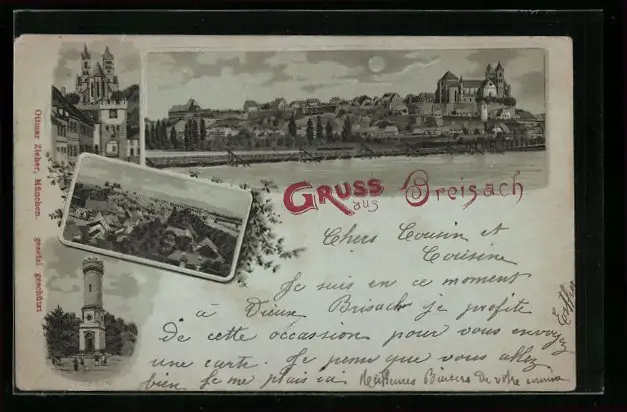 Ottmar Zieher, München. gesetzl. geschützt
GRUSS aus Breisach
Chers Cousin et
Cousine
Je suis en ce moment
à Vieux Brisach je profite
de cette occasion pour vous envoyez
une carte. Je pense que vous allez
bien Je me plais ici Meilleures Baisers de votre cousine